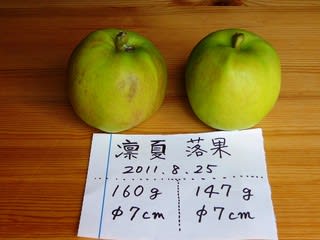 凛夏 落果
2011.8.25
160g 147g
φ7cm φ7cm